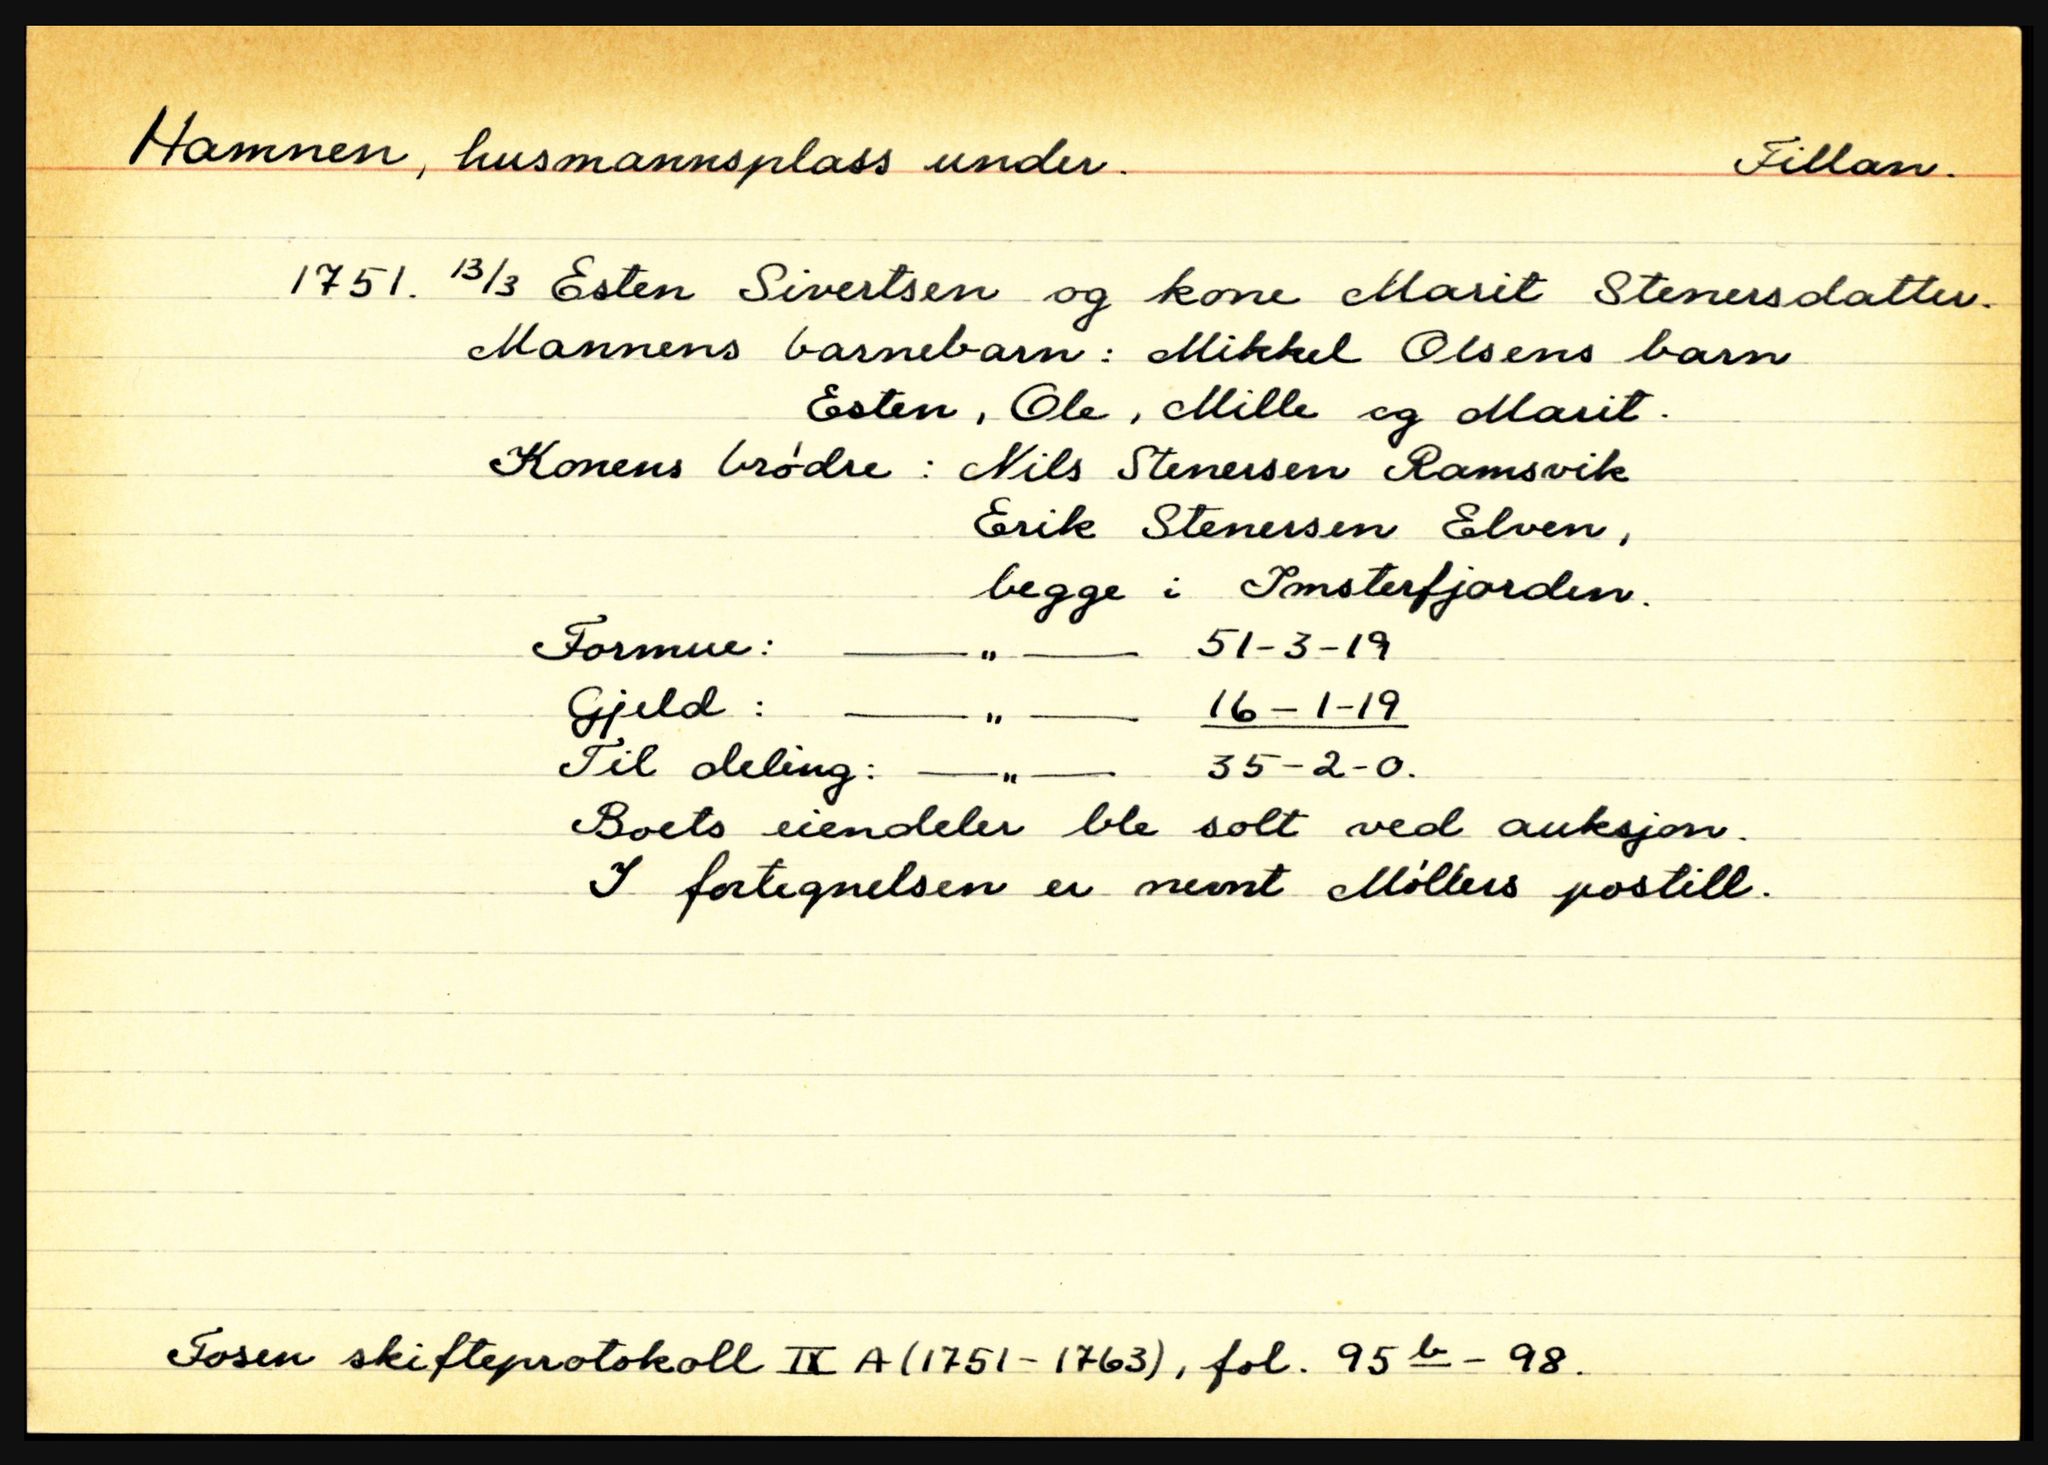 Hamnen, husmannsplass under. Fillan.
1751. 13/3 Esten Sivertsen og kone Marit Stenersdatter.
Mannens barnebarn: Mikkel Olsens barn
Esten, Ole, Mille og Marit.
Konens brødre: Nils Stenersen Ramsvik
Erik Stenersen Elven,
begge i Imsterfjorden.
Formue: —— „ —— 51-3-19
Gjeld: —— „ —— 16-1-19
Til deling: —— „ —— 35-2-0.
Boets eiendeler ble solt ved auksjon.
I fortegnelsen er nevnt Møllers postill.
Fosen skifteprotokoll IX A (1751-1763), fol. 95 b - 98.